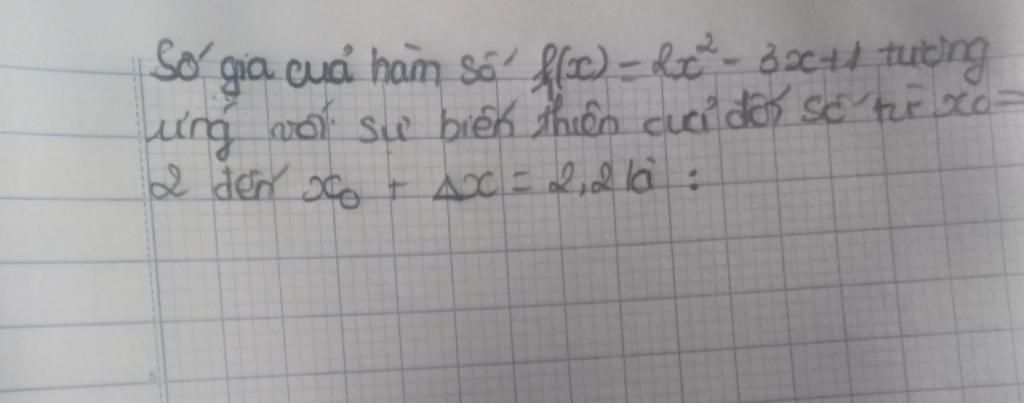 Số gia cuả hàm số f(x) = 2x² - 3x+1 tương
ứng với sự biến thiên cuả đối số từ x0 =
2 đến x₀ + Δx = 2,2 là :